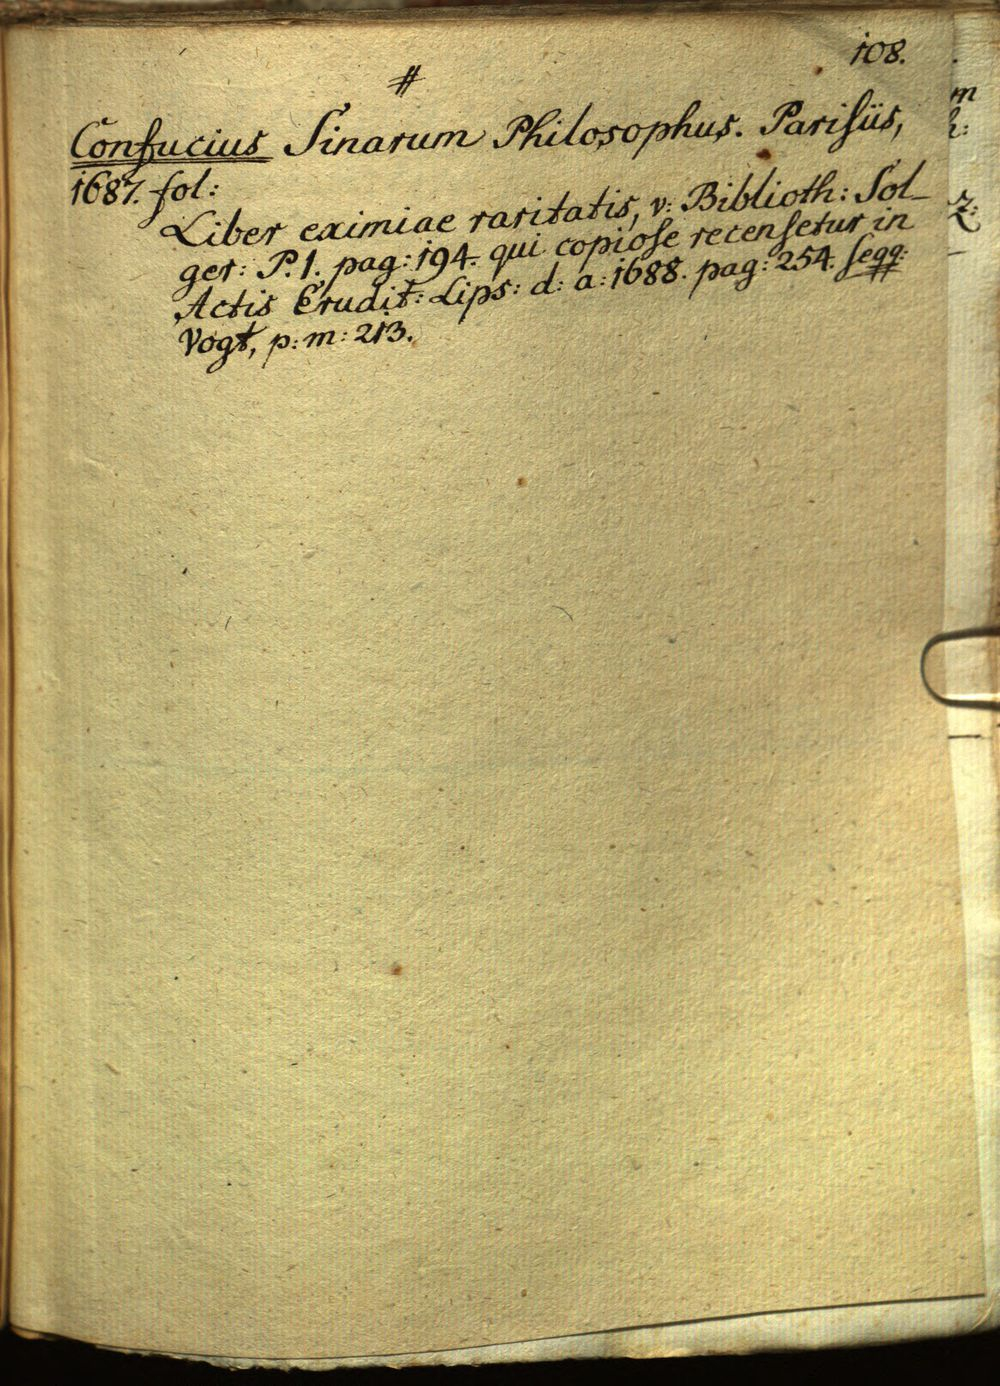 108.
#
Confucius Sinarum Philosophus. Parisiis,
1687. fol:
Liber eximiae raritatis, v: Biblioth: Sol-
ger: P. 1. pag: 194. qui copiose recensetur in
Actis Erudit: Lips: d: a: 1688. pag: 254. seqq:
Vogt, p: m: 213.